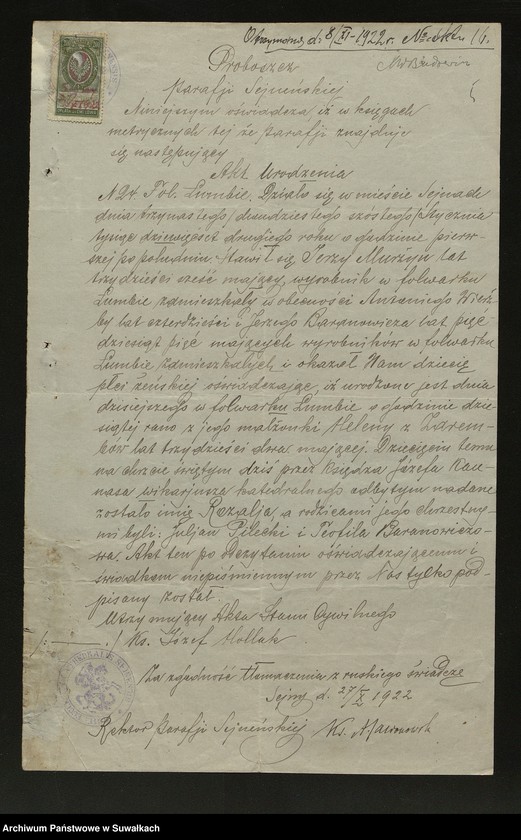 Otrzymano d. 8/XI - 1922 r. No aktu 16.
Proboszcz
Parafji Sejneńskiej
Niniejszym oświadcza, iż w księgach
metrycznych tej że parafji znajduje
się następujący
Akt Urodzenia
N 24 Fol. Lumbie. Działo się w mieście Sejnach
dnia trzynastego/dwudziestego szóstego/Stycznia
tysiąc dziewięćset drugiego roku o godzinie pierw-
szej po południu. Stawił się Jerzy Murzyn lat
trzydzieści sześć mający, wyrobnik w folwarku
Lumbie zamieszkały w obecności Antoniego Wierz-
by lat czterdzieści i Jerzego Baranowicza lat pięć-
dziesiąt pięć mających wyrobników w folwarku
Lumbie zamieszkałych i okazał Nam dziecię
płci żeńskiej oświadczając, iż urodzone jest dnia
dzisiejszego w folwarku Lumbie o godzinie dzie-
siątej rano z jego małżonki Heleny z Zarem-
ków lat trzydzieści dwa mającej. Dziecięciu temu
na chrzcie świętym dziś przez księdza Józefa Kau-
nasa wikarjusza katedralnego odbytym nadane
zostało imię Rozalja, a rodzicami jego chrzestny-
mi byli: Juljan Pilecki i Teofila Baranowiczo-
wa. Akt ten po odczytaniu oświadczającemu i
świadkom niepiśmiennym przez Nas tylko pod-
pisany został.
Utrzymujący Akta Stanu Cywilnego
/:-/ Ks. Józef Hollak.
Za zgodność tłumaczenia z ruskiego świadczę
Sejny d. 27/X 1922
Rektor Parafji Sejneńskiej Ks.
Archiwum Państwowe w Suwałkach